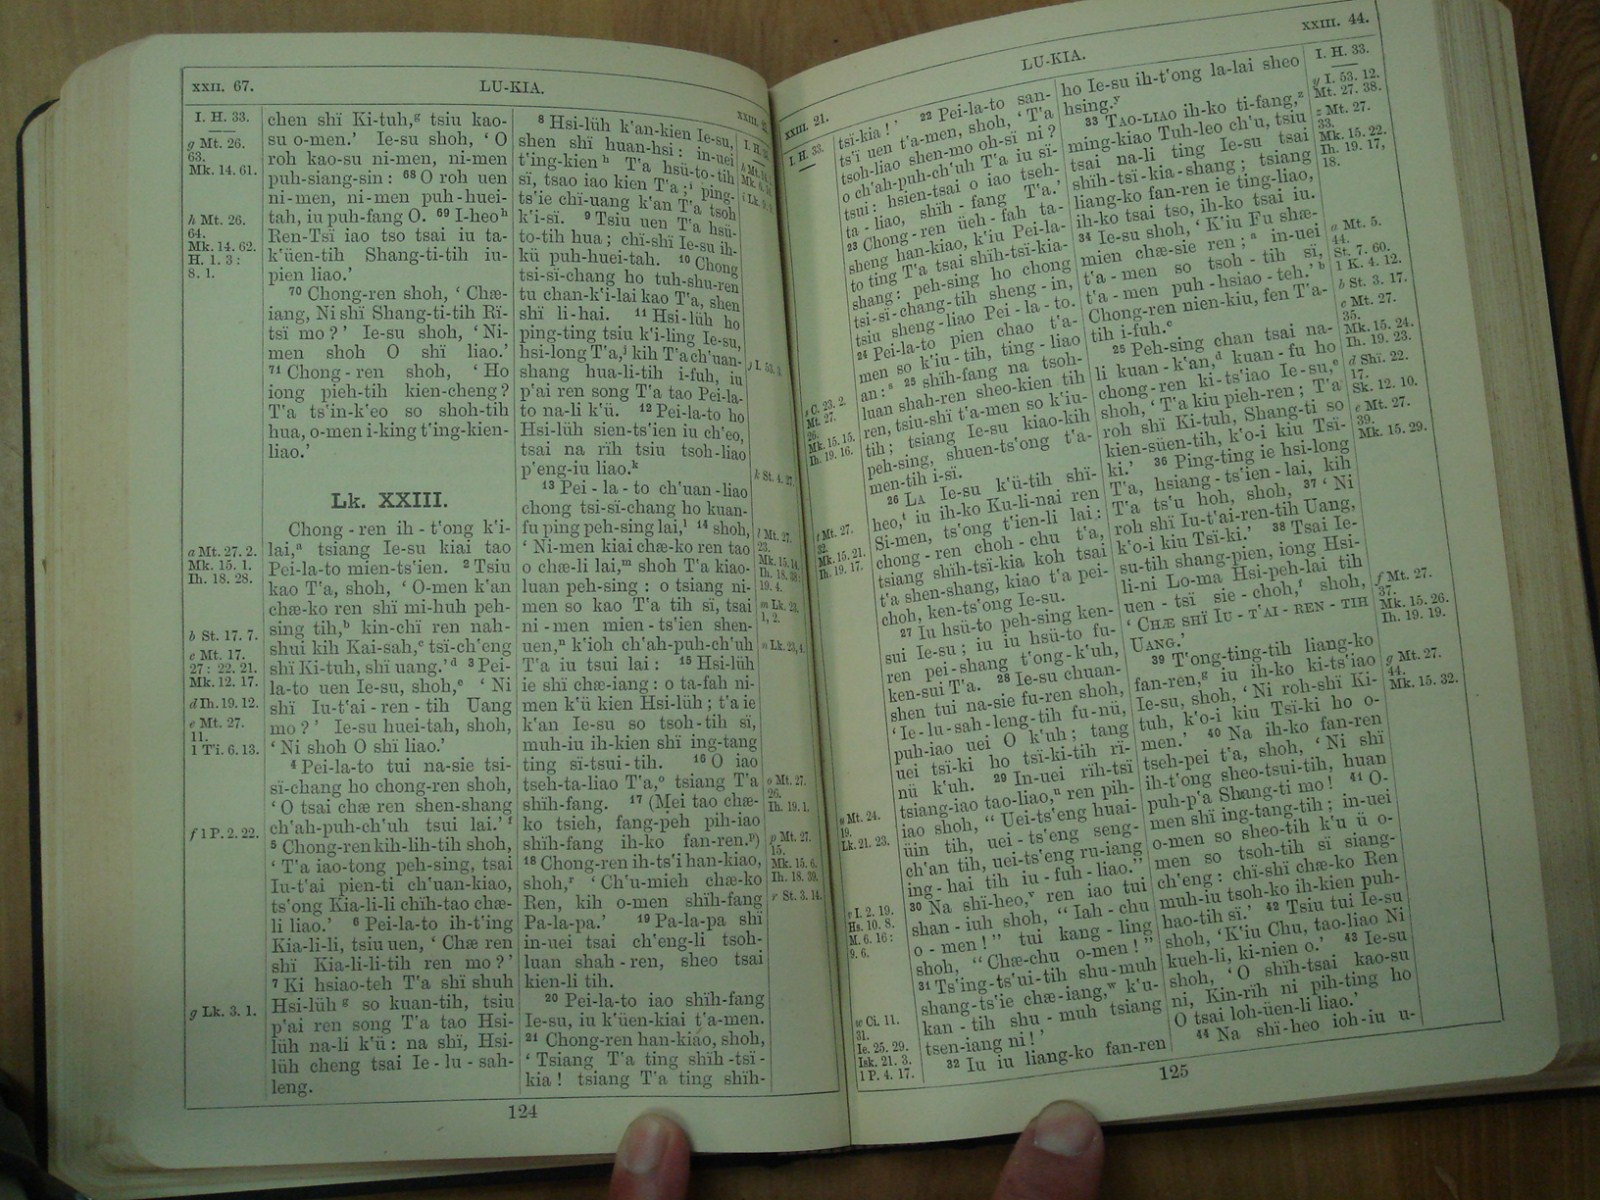 XXII. 67.
LU-KIA.
I. H. 33.
g Mt. 26.
63.
Mk. 14. 61.
h Mt. 26.
64.
Mk. 14. 62.
H. 1. 3 :
8. 1.
a Mt. 27. 2.
Mk. 15. 1.
Ih. 18. 28.
b St. 17. 7.
c Mt. 17.
27 : 22. 21.
Mk. 12. 17.
d Ih. 19. 12.
e Mt. 27.
11.
1 Ti. 6. 13.
f 1 P. 2. 22.
g Lk. 3. 1.
chen shï Ki-tuh,g tsiu kao-
su o-men.’ Ie-su shoh, ‘ O
roh kao-su ni-men, ni-men
puh-siang-sin : 68 O roh uen
ni-men, ni-men puh-huei-
tah, iu puh-fang O. 69 I-heo h
Ren-Tsï iao tso tsai iu ta-
k‘üen-tih Shang-ti-tih iu-
pien liao.’
70 Chong-ren shoh, ‘ Chæ-
iang, Ni shï Shang-ti-tih Rï-
tsï mo ? ’ Ie-su shoh, ‘ Ni-
men shoh O shï liao.’
71 Chong-ren shoh, ‘ Ho
iong pieh-tih kien-cheng ?
T‘a ts‘in-k‘eo so shoh-tih
hua, o-men i-king t‘ing-kien-
liao.’
Lk. XXIII.
Chong-ren ih-t‘ong k‘i-
lai,a tsiang Ie-su kiai tao
Pei-la-to mien-ts‘ien. 2 Tsiu
kao T‘a, shoh, ‘ O-men k‘an
chæ-ko ren shï mi-huh peh-
sing tih,b kin-chï ren nah-
shui kih Kai-sah,c tsï-ch‘eng
shï Ki-tuh, shï uang.’ d 3 Pei-
la-to uen Ie-su, shoh,e ‘ Ni
shï Iu-t‘ai-ren-tih Uang
mo ? ’ Ie-su huei-tah, shoh,
‘ Ni shoh O shï liao.’
4 Pei-la-to tui na-sie tsi-
sï-chang ho chong-ren shoh,
‘ O tsai chæ ren shen-shang
ch‘ah-puh-ch‘uh tsui lai.’ f
5 Chong-ren kih-lih-tih shoh,
‘ T‘a iao-tong peh-sing, tsai
Iu-t‘ai pien-ti ch‘uan-kiao,
ts‘ong Kia-li-li chïh-tao chæ-
li liao.’ 6 Pei-la-to ih-t‘ing
Kia-li-li, tsiu uen, ‘ Chæ ren
shï Kia-li-li-tih ren mo ? ’
7 Ki hsiao-teh T‘a shï shuh
Hsi-lüh g so kuan-tih, tsiu
p‘ai ren song T‘a tao Hsi-
lüh na-li k‘ü : na shï, Hsi-
lüh cheng tsai Ie-lu-sah-
leng.
8 Hsi-lüh k‘an-kien Ie-su,
shen shï huan-hsi : in-uei
t‘ing-kien h T‘a hsü-to-tih
sï, tsao iao kien T‘a ; i ping-
ts‘ie chï-uang k‘an T‘a tsoh
k‘i-sï. 9 Tsiu uen T‘a hsü-
to-tih hua ; chï-shï Ie-su ih-
kü puh-huei-tah. 10 Chong
tsi-sï-chang ho tuh-shu-ren
tu chan-k‘i-lai kao T‘a, shen
shï li-hai. 11 Hsi-lüh ho
ping-ting tsiu k‘i-ling Ie-su,
hsi-long T‘a,j kih T‘a ch‘uan-
shang hua-li-tih i-fuh, iu
p‘ai ren song T‘a tao Pei-la-
to na-li k‘ü. 12 Pei-la-to ho
Hsi-lüh sien-ts‘ien iu ch‘eo,
tsai na rïh tsiu tsoh-liao
p‘eng-iu liao.k
13 Pei-la-to ch‘uan-liao
chong tsi-sï-chang ho kuan-
fu ping peh-sing lai,l 14 shoh,
‘ Ni-men kiai chæ-ko ren tao
o chæ-li lai,m shoh T‘a kiao-
luan peh-sing : o tsiang ni-
men so kao T‘a tih sï, tsai
ni-men mien-ts‘ien shen-
uen,n k‘ioh ch‘ah-puh-ch‘uh
T‘a iu tsui lai : 15 Hsi-lüh
ie shï chæ-iang : o ta-fah ni-
men k‘ü kien Hsi-lüh ; t‘a ie
k‘an Ie-su so tsoh-tih sï,
muh-iu ih-kien shï ing-tang
ting sï-tsui-tih. 16 O iao
tseh-ta-liao T‘a,o tsiang T‘a
shïh-fang. 17 (Mei tao chæ-
ko tsieh, fang-peh pih-iao
shïh-fang ih-ko fan-ren.p)
18 Chong-ren ih-ts‘i han-kiao,
shoh,r ‘ Ch‘u-mieh chæ-ko
Ren, kih o-men shïh-fang
Pa-la-pa.’ 19 Pa-la-pa shï
in-uei tsai ch‘eng-li tsoh-
luan shah-ren, sheo tsai
kien-li tih.
20 Pei-la-to iao shïh-fang
Ie-su, iu k‘üen-kiai t‘a-men.
21 Chong-ren han-kiao, shoh,
‘ Tsiang T‘a ting shïh-tsï-
kia ! tsiang T‘a ting shïh-
k St. 4. 27.
l Mt. 27.
23.
Mk. 15. 14.
Ih. 18. 38 :
19. 4.
m Lk. 23.
1, 2.
n Lk. 23, 4.
o Mt. 27.
26.
Ih. 19. 1.
p Mt. 27.
15.
Mk. 15. 6.
Ih. 18. 39.
r St. 3. 14.
124
XXIII. 21.
LU-KIA.
XXIII. 44.
I. H. 33.
s C. 23. 2.
Mt. 27.
26.
Mk. 15. 15.
Ih. 19. 16.
t Mt. 27.
32.
Mk. 15. 21.
Ih. 19. 17.
u Mt. 24.
19.
Lk. 21. 23.
v I. 2. 19.
Hs. 10. 8.
M. 6. 16 :
9. 6.
w Ci. 11.
31.
Ie. 25. 29.
Isk. 21. 3.
1 P. 4. 17.
tsï-kia ! ’ 22 Pei-la-to san-
ts‘ï uen t‘a-men, shoh, ‘ T‘a
tsoh-liao shen-mo oh-sï ni ?
o ch‘ah-puh-ch‘uh T‘a iu sï-
tsui : hsien-tsai o iao tseh-
ta-liao, shïh-fang T‘a.’
23 Chong-ren üeh-fah ta-
sheng han-kiao, k‘iu Pei-la-
to ting T‘a tsai shïh-tsï-kia-
shang : peh-sing ho chong
tsi-sï-chang-tih sheng-in,
tsiu sheng-liao Pei-la-to.
24 Pei-la-to pien chao t‘a-
men so k‘iu-tih, ting-liao
an : s 25 shïh-fang na tsoh-
luan shah-ren sheo-kien tih
ren, tsiu-shï t‘a-men so k‘iu-
tih ; tsiang Ie-su kiao-kih
peh-sing, shuen-ts‘ong t‘a-
men-tih i-sï.
26 La Ie-su k‘ü-tih shï-
heo,t iu ih-ko Ku-li-nai ren
Si-men, ts‘ong t‘ien-li lai :
chong-ren choh-chu t‘a,
tsiang shïh-tsï-kia koh tsai
t‘a shen-shang, kiao t‘a pei-
choh, ken-ts‘ong Ie-su.
27 Iu hsü-to peh-sing ken-
sui Ie-su ; iu iu hsü-to fu-
ren pei-shang t‘ong-k‘uh,
ken-sui T‘a. 28 Ie-su chuan-
shen tui na-sie fu-ren shoh,
‘ Ie-lu-sah-leng-tih fu-nü,
puh-iao uei O k‘uh ; tang
uei tsï-ki ho tsï-ki-tih rï-
nü k‘uh. 29 In-uei rïh-tsï
tsiang-iao tao-liao,u ren pih-
iao shoh, “ Uei-ts‘eng huai-
üin tih, uei-ts‘eng seng-
ch‘an tih, uei-ts‘eng ru-iang
ing-hai tih iu-fuh-liao.”
30 Na shï-heo,v ren iao tui
shan-iuh shoh, “ Iah-chu
o-men ! ” tui kang-ling
shoh, “ Chæ-chu o-men ! ”
31 Ts‘ing-ts‘ui-tih shu-muh
shang-ts‘ie chæ-iang,w k‘u-
kan-tih shu-muh tsiang
tsen-iang ni ! ’
32 Iu iu liang-ko fan-ren
ho Ie-su ih-t‘ong la-lai sheo
hsing.y
33 Tao-liao ih-ko ti-fang,z
ming-kiao Tuh-leo ch‘u, tsiu
tsai na-li ting Ie-su tsai
shïh-tsï-kia-shang ; tsiang
liang-ko fan-ren ie ting-liao,
ih-ko tsai tso, ih-ko tsai iu.
34 Ie-su shoh, ‘ K‘iu Fu shæ-
mien chæ-sie ren ; a in-uei
t‘a-men so tsoh-tih sï,
t‘a-men puh-hsiao-teh.’ b
Chong-ren nien-kiu, fen T‘a-
tih i-fuh.c
25 Peh-sing chan tsai na-
li kuan-k‘an,d kuan-fu ho
chong-ren ki-ts‘iao Ie-su,e
shoh, ‘ T‘a kiu pieh-ren ; T‘a
roh shï Ki-tuh, Shang-ti so
kien-süen-tih, k‘o-i kiu Tsï-
ki.’ 36 Ping-ting ie hsi-long
T‘a, hsiang-ts‘ien-lai, kih
T‘a ts‘u hoh, shoh, 37 ‘ Ni
roh shï Iu-t‘ai-ren-tih Uang,
k‘o-i kiu Tsï-ki.’ 38 Tsai Ie-
su-tih shang-pien, iong Hsi-
li-ni Lo-ma Hsi-peh-lai tih
uen-tsï sie-choh,f shoh,
‘ Chæ shï Iu-t‘ai-ren-tih
Uang.’
39 T‘ong-ting-tih liang-ko
fan-ren,g iu ih-ko ki-ts‘iao
Ie-su, shoh, ‘ Ni roh-shï Ki-
tuh, k‘o-i kiu Tsï-ki ho o-
men.’ 40 Na ih-ko fan-ren
tseh-pei t‘a, shoh, ‘ Ni shï
ih-t‘ong sheo-tsui-tih, huan
puh-p‘a Shang-ti mo ! 41 O-
men shï ing-tang-tih ; in-uei
o-men so sheo-tih k‘u ü o-
men so tsoh-tih sï siang-
ch‘eng : chï-shï chæ-ko Ren
muh-iu tsoh-ko ih-kien puh-
hao-tih sï.’ 42 Tsiu tui Ie-su
shoh, ‘ K‘iu Chu, tao-liao Ni
kueh-li, ki-nien o.’ 43 Ie-su
shoh, ‘ O shïh-tsai kao-su
ni, Kin-rïh ni pih-ting ho
O tsai loh-üen-li liao.’
44 Na shï-heo ioh-iu u-
I. H. 33.
y I. 53. 12.
Mt. 27. 38.
z Mt. 27.
33.
Mk. 15. 22.
Ih. 19. 17,
18.
a Mt. 5.
44.
St. 7. 60.
1 K. 4. 12.
b St. 3. 17.
c Mt. 27.
35.
Mk. 15. 24.
Ih. 19. 23.
d Shï. 22.
17.
Sk. 12. 10.
e Mt. 27.
39.
Mk. 15. 29.
f Mt. 27.
37.
Mk. 15. 26.
Ih. 19. 19.
g Mt. 27.
44.
Mk. 15. 32.
125